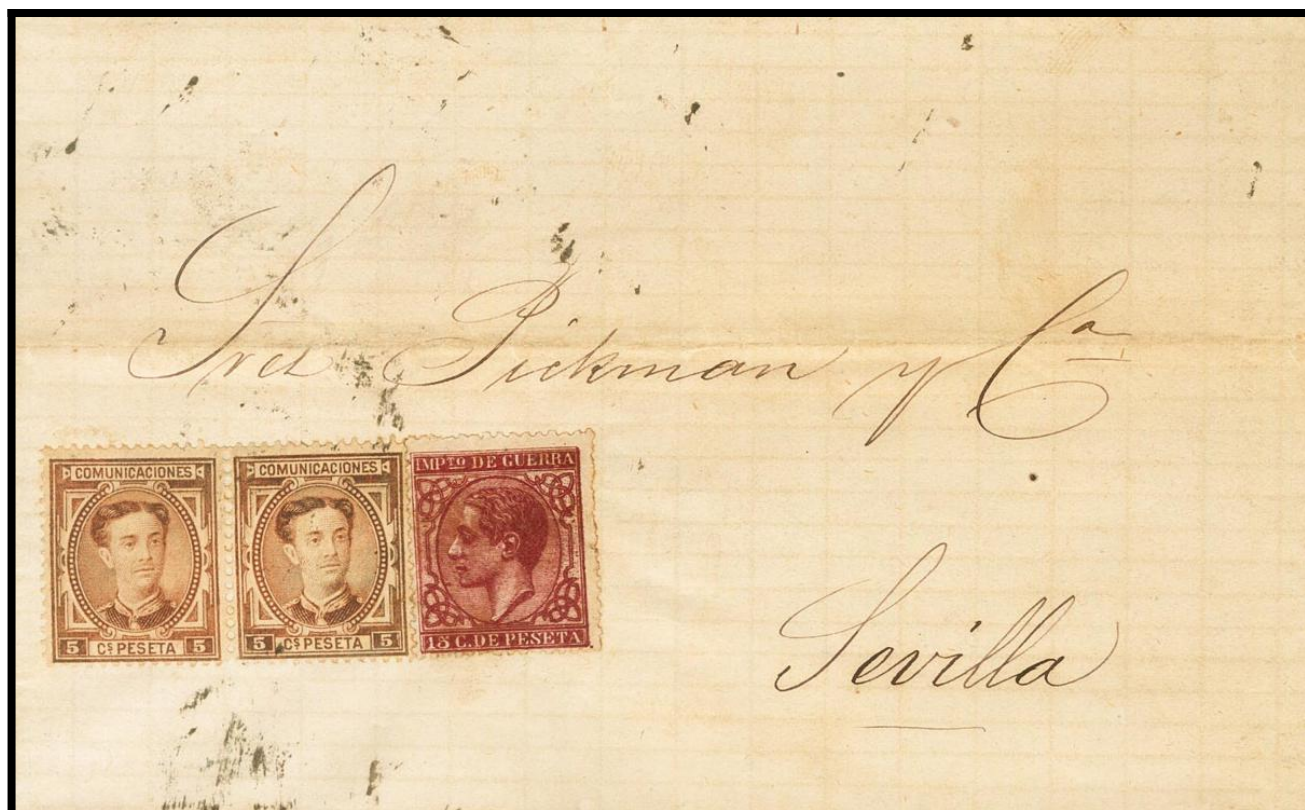 Sres Pickman y Cª
COMUNICACIONES
5 Cˢ PESETA 5
COMUNICACIONES
5 Cˢ PESETA 5
IMPᵀᴼ DE GUERRA
15 C. DE PESETA
Sevilla